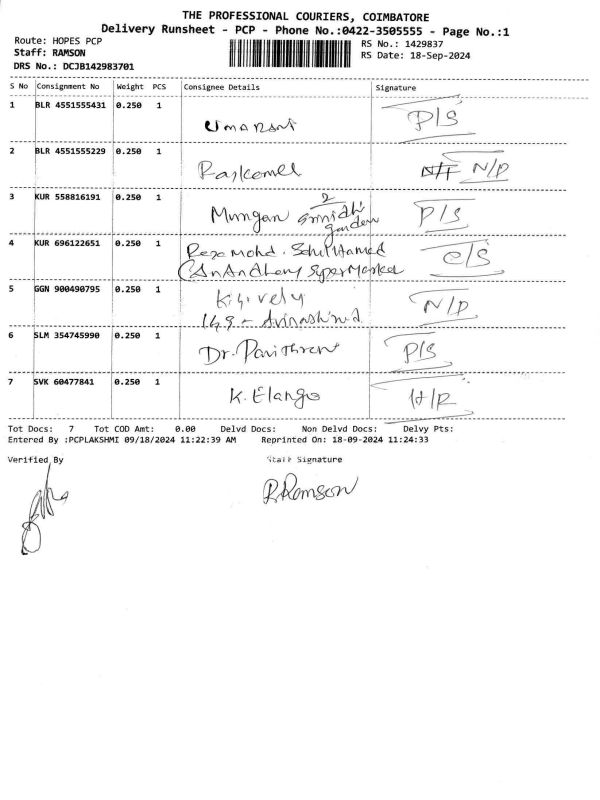 THE PROFESSIONAL COURIERS, COIMBATORE
Delivery Runsheet - PCP - Phone No.:0422-3505555 - Page No.:1
Route: HOPES PCP
RS No.: 1429837
Staff: RAMSON
RS Date: 18-Sep-2024
DRS No.: DCJB142983701
S No Consignment No Weight PCS Consignee Details Signature
1 BLR 4551555431 0.250 1 P/S
2 BLR 4551555229 0.250 1 N/P
3 KUR 558816191 0.250 1 Murugan P/S
4 KUR 696122651 0.250 1 Mohd. C/S
Super Market
5 GGN 900490795 0.250 1 N/P
6 SLM 354745990 0.250 1 Dr. P/S
7 SVK 60477841 0.250 1 K. Elango
Tot Docs: 7 Tot COD Amt: 0.00 Delvd Docs: Non Delvd Docs: Delvy Pts:
Entered By :PCPLAKSHMI 09/18/2024 11:22:39 AM Reprinted On: 18-09-2024 11:24:33
Verified By Staff Signature
R. Ramson